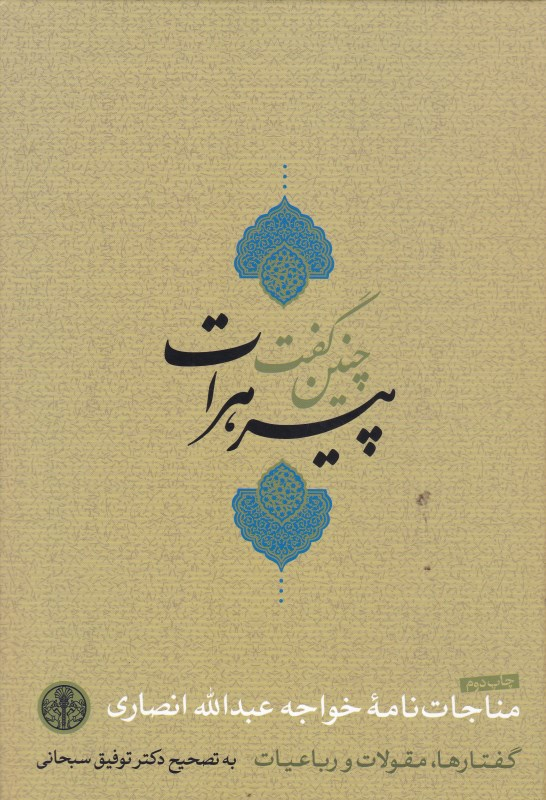 چنین گفت
پیر هرات
چاپ دوم
مناجات‌نامهٔ خواجه عبدالله انصاری
گفتارها، مقولات و رباعیات به تصحیح دکتر توفیق سبحانی